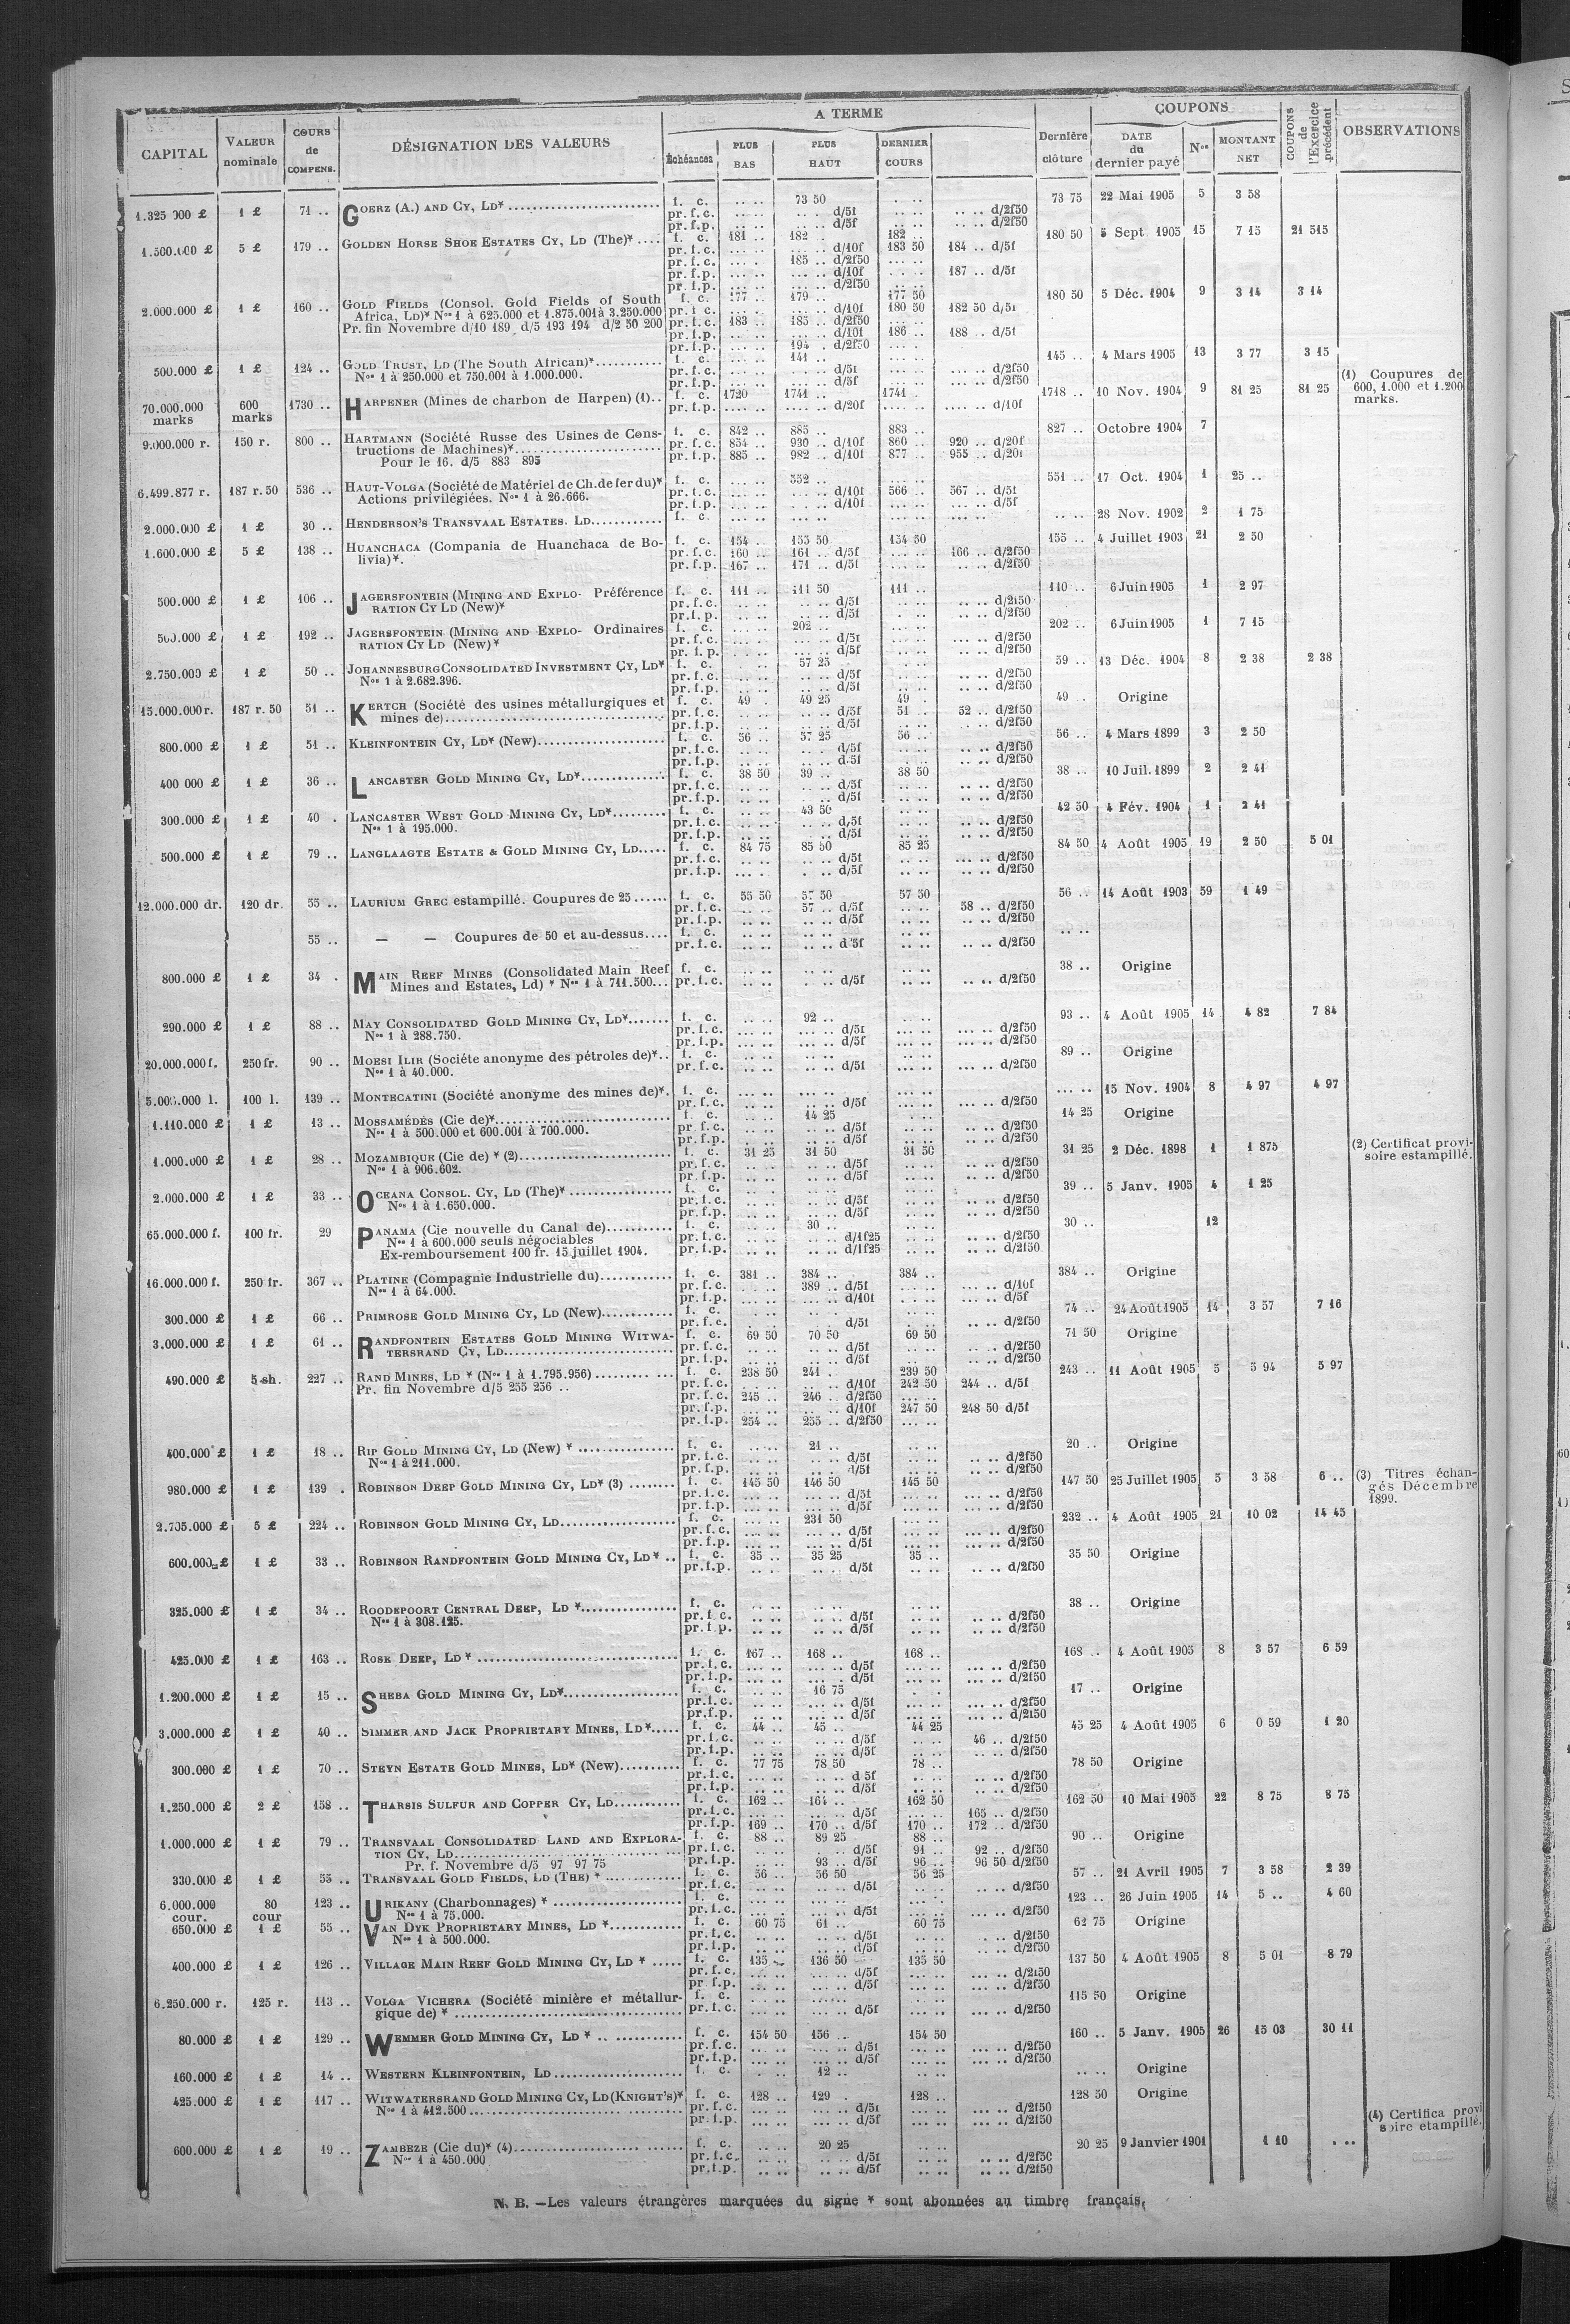 CAPITAL VALEUR nominale COURS de COMPENS. DÉSIGNATION DES VALEURS A TERME Échéances PLUS BAS PLUS HAUT DERNIER COURS Dernière clôture COUPONS DATE du dernier payé Nos MONTANT NET COUPONS de l'Exercice précédent OBSERVATIONS
1 £ 71 .. GOERZ (A.) AND CY, LD* f. c. .. .. 73 50 .. .. 73 75 22 Mai 1905 5 3 58
pr. f. c. .. .. .. .. d/5f .. .. .. .. d/2f50
pr. f. p. .. .. .. .. d/5f .. .. .. .. d/2f50
5 £ 179 .. GOLDEN HORSE SHOE ESTATES CY, LD (The)* .... f. c. 181 .. 182 .. 182 .. 180 50 5 Sept. 1905 15 7 15 21 515
pr. f. c. ... .. ... .. d/10f 183 50 184 .. d/5f
pr. f. c. ... .. 185 .. d/2f50 ... ..
pr. f. p. ... .. ... .. d/10f ... .. 187 .. d/5f
pr. f. p. ... .. ... .. d/2f50 ... ..
2.000.000 £ 1 £ 160 .. GOLD FIELDS (Consol. Gold Fields of South f. c. 177 .. 179 .. 177 50 180 50 5 Déc. 1904 9 3 14 3 14
Africa, Ld)* Nos 1 à 625.000 et 1.875.001 à 3.250.000 pr. f. c. ... .. ... .. d/10f 180 50 182 50 d/5f
Pr. fin Novembre d/10 189 d/5 193 194 d/2 50 200 pr. f. c. 183 .. 185 .. d/2f50 ... ..
pr. f. p. ... .. ... .. d/10f 186 .. 188 .. d/5f
pr. f. p. ... .. 194 .. d/2f50 ... ..
500.000 £ 1 £ 124 .. GOLD TRUST, LD (The South African)* f. c. ... .. 141 .. ... .. 145 .. 4 Mars 1905 13 3 77 3 15
Nos 1 à 250.000 et 750.001 à 1.000.000. pr. f. c. ... .. ... .. d/5f ... .. ... .. d/2f50
pr. f. p. ... .. ... .. d/5f ... .. ... .. d/2f50
(1) Coupures de 600, 1.000 et 1.200 marks.
70.000.000 marks 600 marks 1730 .. HARPENER (Mines de charbon de Harpen) (1).. f. c. 1720 1741 .. 1741 . 1718 .. 10 Nov. 1904 9 81 25 81 25
pr. f. p. .... .. .... .. d/20f .... .. .... .. d/10f
9.000.000 r. 150 r. 800 .. HARTMANN (Société Russe des Usines de Cons- f. c. 842 .. 885 .. 883 .. 827 .. Octobre 1904 7
tructions de Machines)* pr. f. c. 854 .. 930 .. d/10f 860 .. 920 .. d/20f
Pour le 16. d/5 883 895 pr. f. p. 885 .. 982 .. d/10f 877 .. 955 .. d/20f
6.499.877 r. 187 r. 50 536 .. HAUT-VOLGA (Société de Matériel de Ch. de fer du)* f. c. ... .. 552 .. ... .. 551 .. 17 Oct. 1904 1 25 ..
Actions privilégiées. Nos 1 à 26.666. pr. f. c. ... .. ... .. d/10f 566 .. 567 .. d/5f
pr. f. p. ... .. ... .. d/10f ... .. ... .. d/5f
2.000.000 £ 1 £ 30 .. HENDERSON'S TRANSVAAL ESTATES. LD............ f. c. ... .. ... .. ... .. .. .. 28 Nov. 1902 2 1 75
1.600.000 £ 5 £ 138 .. HUANCHACA (Compania de Huanchaca de Bo- f. c. 154 .. 155 50 154 50 155 .. 4 Juillet 1903 21 2 50
livia)*. pr. f. c. 160 .. 161 .. d/5f ... .. 166 .. d/2f50
pr. f. p. 167 .. 171 .. d/5f ... .. .. .. d/2f50
500.000 £ 1 £ 106 .. JAGERSFONTEIN (MINING AND EXPLO- Préférence f. c. 111 .. 111 50 111 .. 110 .. 6 Juin 1905 1 2 97
RATION CY LD (New)* pr. f. c. .. .. .. .. d/5f .. .. .. .. d/2f50
pr. f. p. .. .. .. .. d/5f .. .. .. .. d/2f50
500.000 £ 1 £ 192 .. JAGERSFONTEIN (MINING AND EXPLO- Ordinaires f. c. ... .. 202 .. ... .. 202 .. 6 Juin 1905 1 7 15
RATION CY LD (New)* pr. f. c. ... .. ... .. d/5f ... .. ... .. d/2f50
pr. f. p. ... .. ... .. d/5f ... .. ... .. d/2f50
2.750.000 £ 1 £ 50 .. JOHANNESBURG CONSOLIDATED INVESTMENT CY, LD* f. c. .. .. 57 25 .. .. 59 .. 13 Déc. 1904 8 2 38 2 38
Nos 1 à 2.682.396. pr. f. c. .. .. .. .. d/5f .. .. .. .. d/2f50
pr. f. p. .. .. .. .. d/5f .. .. .. .. d/2f50
15.000.000 r. 187 r. 50 51 .. KERTCH (Société des usines métallurgiques et f. c. 49 . 49 25 49 . 49 . Origine
mines de) pr. f. c. .. .. .. .. d/5f 51 .. 52 .. d/2f50
pr. f. p. .. .. .. .. d/5f .. .. . .. d/2f50
800.000 £ 1 £ 51 .. KLEINFONTEIN CY, LD* (New) f. c. 56 .. 57 25 56 .. 56 .. 4 Mars 1899 3 2 50
pr. f. c. .. .. .. .. d/5f .. .. .. .. d/2f50
pr. f. p. .. .. .. .. d/5f .. .. .. .. d/2f50
400 000 £ 1 £ 36 .. LANCASTER GOLD MINING CY, LD* f. c. 38 50 39 .. 38 50 38 .. 10 Juil. 1899 2 2 41
pr. f. c. .. .. .. .. d/5f .. .. .. .. d/2f50
pr. f. p. .. .. .. .. d/5f .. .. .. .. d/2f50
300.000 £ 1 £ 40 . LANCASTER WEST GOLD MINING CY, LD* f. c. .. .. 43 50 .. .. 42 50 4 Fév. 1904 1 2 41
Nos 1 à 195.000. pr. f. c. .. .. .. .. d/5f .. .. .. .. d/2f50
pr. f. p. .. .. .. .. d/5f .. .. .. .. d/2f50
500.000 £ 1 £ 79 .. LANGLAAGTE ESTATE & GOLD MINING CY, LD..... f. c. 84 75 85 50 85 25 84 50 4 Août 1905 19 2 50 5 01
pr. f. c. .. .. .. .. d/5f .. .. ... .. d/2f50
pr. f. p. ... . .. .. d/5f .. .. ... .. d/2f50
12.000.000 dr. 120 dr. 55 .. LAURIUM GREC estampillé. Coupures de 25...... f. c. 55 50 57 50 57 50 56 .. 14 Août 1903 59 1 49
pr. f. c. .. .. 57 .. d/5f .. .. 58 .. d/2f50
pr. f. p. .. .. .. .. d/5f .. .. .. .. d/2f50
55 .. — — Coupures de 50 et au-dessus.... f. c. .. .. .. .. .. .. .. ..
pr. f. c. .. .. .. .. d/5f .. .. .. .. d/2f50
800.000 £ 1 £ 34 . MAIN REEF MINES (Consolidated Main Reef f. c. .. .. .. .. .. .. 38 .. Origine
Mines and Estates, Ld) * Nos 1 à 711.500... pr. f. c. .. .. . .. d/5f .. .. .. .. d/2f50
290.000 £ 1 £ 88 .. MAY CONSOLIDATED GOLD MINING CY, LD* f. c. .. .. 92 .. .. .. 93 .. 4 Août 1905 14 4 82 7 84
Nos 1 à 288.750. pr. f. c. ... .. ... .. d/5f ... .. ... .. d/2f50
pr. f. p. ... .. ... .. d/5f ... .. ... .. d/2f50
20.000.000 f. 250 fr. 90 .. MOESI ILIR (Société anonyme des pétroles de)*.. f. c. .. .. .. .. .. .. 89 .. Origine
Nos 1 à 40.000. pr. f. c. .. .. .. .. d/5f .. .. ... .. d/2f50
100 l. 139 .. MONTECATINI (Société anonyme des mines de)*. f. c. ... .. ... .. ... .. ... .. 15 Nov. 1904 8 4 97 4 97
pr. f. c. .. .. .. .. d/5f .. .. ... .. d/2f50
1.110.000 £ 1 £ 13 .. MOSSAMÉDÈS (Cie de)* f. c. .. .. 14 25 .. .. 14 25 Origine
Nos 1 à 500.000 et 600.001 à 700.000. pr. f. c. .. .. .. .. d/5f .. .. .. .. d/2f50
pr. f. p. .. .. .. .. d/5f .. .. .. .. d/2f50
1.000.000 £ 1 £ 28 .. MOZAMBIQUE (Cie de) * (2) f. c. 31 25 31 50 31 50 31 25 2 Déc. 1898 1 1 875 (2) Certificat provi-
Nos 1 à 906.602. pr. f. c. .. .. .. .. d/5f .. .. .. .. d/2f50 soire estampillé.
pr. f. p. .. .. .. .. d/5f .. .. .. .. d/2f50
2.000.000 £ 1 £ 33 .. OCEANA CONSOL. CY, LD (The)* f. c. .. .. .. .. .. .. 39 .. 5 Janv. 1905 4 1 25
Nos 1 à 1.650.000. pr. f. c. .. .. .. .. d/5f .. .. .. .. d/2f50
pr. f. p. .. .. .. .. d/5f .. .. .. .. d/2f50
65.000.000 f. 100 fr. 29 PANAMA (Cie nouvelle du Canal de) f. c. .. .. 30 .. .. .. 30 .. 12
Nos 1 à 600.000 seuls négociables pr. f. c. .. .. .. .. d/1f25 .. .. .. .. d/2f50
Ex-remboursement 100 fr. 15 juillet 1904. pr. f. p. .. .. .. .. d/1f25 .. .. .. .. d/2f50
16.000.000 f. 250 fr. 367 .. PLATINE (Compagnie Industrielle du) f. c. 381 .. 384 .. 384 .. 384 .. Origine
Nos 1 à 64.000. pr. f. c. ... .. 389 .. d/5f ... .. ... .. d/10f
pr. f. p. ... .. ... .. d/10f ... .. ... .. d/5f
300.000 £ 1 £ 66 .. PRIMROSE GOLD MINING CY, LD (New) f. c. .. .. .. .. .. .. 74 .. 24 Août 1905 14 3 57 7 16
pr. f. c. .. .. .. .. d/5f .. .. .. .. d/2f50
3.000.000 £ 1 £ 61 .. RANDFONTEIN ESTATES GOLD MINING WITWA- f. c. 69 50 70 50 69 50 71 50 Origine
TERSRAND CY, LD pr. f. c. .. .. .. .. d/5f .. .. d/2f50
pr. f. p. .. .. .. .. d/5f .. .. d/2f50
490.000 £ 5 sh. 227 .. RAND MINES, LD * (Nos 1 à 1.795.956) f. c. 238 50 241 .. 239 50 243 .. 11 Août 1905 5 5 94 5 97
Pr. fin Novembre d/5 255 256 .. pr. f. c. ... .. ... .. d/10f 242 50 244 .. d/5f
pr. f. c. 245 .. 246 .. d/2f50 ... ..
pr. f. p. ... .. ... .. d/10f 247 50 248 50 d/5f
pr. f. p. 254 .. 255 .. d/2f50 ... ..
400.000 £ 1 £ 18 .. RIP GOLD MINING CY, LD (New) * f. c. .. .. 21 .. .. .. 20 .. Origine
Nos 1 à 211.000. pr. f. c. .. .. .. .. d/5f .. .. .. .. d/2f50
pr. f. p. .. .. .. .. d/5f .. .. .. .. d/2f50
980.000 £ 1 £ 139 . ROBINSON DEEP GOLD MINING CY, LD* (3) f. c. 145 50 146 50 145 50 147 50 25 Juillet 1905 5 3 58 6 .. (3) Titres échan-
pr. f. c. ... .. ... .. d/5f ... .. .. .. d/2f50 gés Décembre
pr. f. p. ... .. ... .. d/5f ... .. .. .. d/2f50 1899.
5 £ 224 .. ROBINSON GOLD MINING CY, LD f. c. ... .. 231 50 ... .. 232 .. 4 Août 1905 21 10 02 14 45
pr. f. c. ... .. ... .. d/5f ... .. ... .. d/2f50
pr. f. p. ... .. ... .. d/5f ... .. ... .. d/2f50
600.000 £ 1 £ 33 .. ROBINSON RANDFONTEIN GOLD MINING CY, LD* .. f. c. 35 .. 35 25 35 .. 35 50 Origine
pr. f. p. .. .. .. .. d/5f .. .. .. .. d/2f50
325.000 £ 1 £ 34 .. ROODEPOORT CENTRAL DEEP, LD * f. c. .. .. .. .. .. .. 38 .. Origine
Nos 1 à 308.125. pr. f. c. .. .. .. .. d/5f .. .. .. .. d/2f50
pr. f. p. .. .. .. .. d/5f .. .. .. .. d/2f50
425.000 £ 1 £ 163 .. ROSE DEEP, LD * f. c. 167 .. 168 .. 168 .. 168 .. 4 Août 1905 8 3 57 6 59
pr. f. c. ... .. ... .. d/5f ... .. ... .. d/2f50
pr. f. p. ... .. ... .. d/5f ... .. ... .. d/2f50
1.200.000 £ 1 £ 15 .. SHEBA GOLD MINING CY, LD* f. c. .. .. 16 75 .. .. 17 .. Origine
pr. f. c. ... .. ... .. d/5f ... .. ... .. d/2f50
pr. f. p. ... .. ... .. d/5f ... .. ... .. d/2f50
3.000.000 £ 1 £ 40 .. SIMMER AND JACK PROPRIETARY MINES, LD* f. c. 44 .. 45 .. 44 25 45 25 4 Août 1905 6 0 59 1 20
pr. f. c. .. .. .. .. d/5f .. .. 46 .. d/2f50
pr. f. p. .. .. .. .. d/5f .. .. .. .. d/2f50
300.000 £ 1 £ 70 .. STEYN ESTATE GOLD MINES, LD* (New) f. c. 77 75 78 50 78 .. 78 50 Origine
pr. f. c. ... .. ... .. d 5f .. .. .. .. d/2f50
pr. f. p. ... .. ... .. d/5f .. .. .. .. d/2f50
1.250.000 £ 2 £ 158 .. THARSIS SULFUR AND COPPER CY, LD f. c. 162 .. 164 .. 162 50 162 50 10 Mai 1905 22 8 75 8 75
pr. f. c. ... .. ... .. d/5f ... .. 165 .. d/2f50
pr. f. p. 169 .. 170 .. d/5f 170 .. 172 .. d/2f50
1.000.000 £ 1 £ 79 .. TRANSVAAL CONSOLIDATED LAND AND EXPLORA- f. c. 88 .. 89 25 88 .. 90 .. Origine
TION CY, LD pr. f. c. .. .. .. .. d/5f 91 .. 92 .. d/2f50
Pr. f. Novembre d/5 97 97 75 pr. f. p. .. .. 93 .. d/5f 96 .. 96 50 d/2f50
330.000 £ 1 £ 55 .. TRANSVAAL GOLD FIELDS, LD (THE) * f. c. 56 .. 56 50 56 25 57 .. 21 Avril 1905 7 3 58 2 39
pr. f. c. .. .. .. .. d/5f .. .. .. .. d/2f50
6.000.000 cour. 80 cour 123 .. URIKANY (Charbonnages) * f. c. ... .. ... .. ... .. 123 .. 26 Juin 1905 14 5 .. 4 60
Nos 1 à 75.000. pr. f. c. ... .. ... .. d/5f ... .. ... .. d/2f50
650.000 £ 1 £ 55 .. VAN DYK PROPRIETARY MINES, LD * f. c. 60 75 61 .. 60 75 62 75 Origine
Nos 1 à 500.000. pr. f. c. .. .. .. .. d/5f .. .. . .. d/2f50
pr. f. p. .. .. .. .. d/5f .. .. .. .. d/2f50
400.000 £ 1 £ 126 .. VILLAGE MAIN REEF GOLD MINING CY, LD * ..... f. c. 135 .. 136 50 135 50 137 50 4 Août 1905 8 5 01 8 79
pr. f. c. ... .. ... .. d/5f ... .. ... .. d/2f50
pr. f. p. ... .. ... .. d/5f ... .. ... .. d/2f50
6.250.000 r. 125 r. 113 .. VOLGA VICHERA (Société minière et métallur- f. c. ... .. ... .. ... .. 115 50 Origine
gique de) * pr. f. c. ... .. ... .. d/5f ... .. ... .. d/2f50
80.000 £ 1 £ 129 .. WEMMER GOLD MINING CY, LD * f. c. 154 50 156 .. 154 50 160 .. 5 Janv. 1905 26 15 03 30 11
pr. f. c. ... .. ... .. d/5f ... .. ... .. d/2f50
pr. f. p. ... .. ... .. d/5f ... .. ... .. d/2f50
160.000 £ 1 £ 14 .. WESTERN KLEINFONTEIN, LD f. c. . .. 12 .. .. .. .. .. Origine
425.000 £ 1 £ 117 .. WITWATERSRAND GOLD MINING CY, LD (KNIGHT'S)* f. c. 128 .. 129 . 128 .. 128 50 Origine
Nos 1 à 412.500 pr. f. c. ... .. ... .. d/5f ... .. ... .. d/2f50
pr. f. p. ... .. ... .. d/5f ... .. ... .. d/2f50
(4) Certifica provi
soire etampillé.
600.000 £ 1 £ 19 .. ZAMBÈZE (Cie du)* (4) f. c. .. .. 20 25 .. .. 20 25 9 Janvier 1901 1 10 . ..
Nos 1 à 450.000 pr. f. c. .. .. .. .. d/5f .. .. d/2f50
pr. f. p. .. .. .. .. d/5f .. .. d/2f50
N. B. —Les valeurs étrangères marquées du signe * sont abonnées au timbre français.